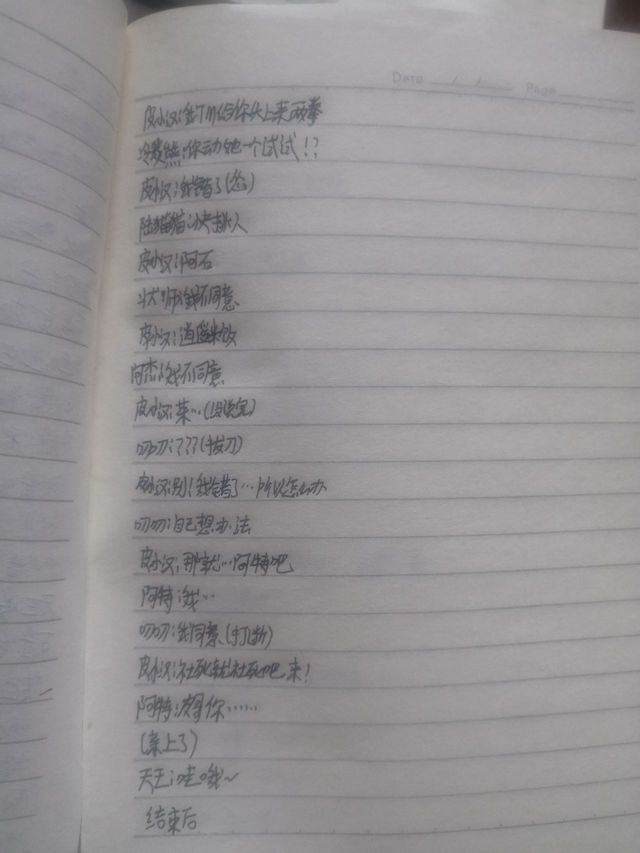 Date / / Page
皮小汉:我TM给你头上来两拳
冷斐熊:你动她一个试试!?
皮小汉:我错了(怂)
陆猫猫:快挑人
皮小汉:阿石
大师:我不同意
皮小汉:道
阿杰:我不同意
皮小汉:菜…(没说完)
叨叨:???(拔刀)
皮小汉:别!我错了…所以怎么办
叨叨:自己想办法
皮小汉:那就…阿特吧
阿特:我…
叨叨:我同意(打断)
皮小汉:社死就社死吧来!
阿特:等你……
(亲上了)
天王:哇哦~
结束后